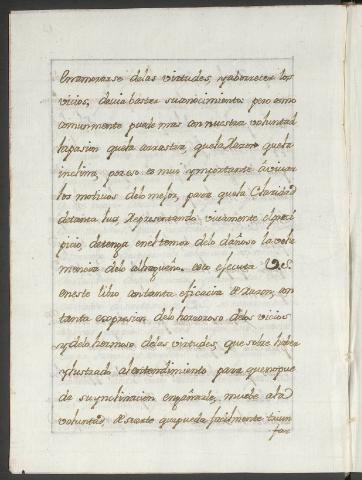 Enamorarse delas virtudes, y aborrecer los
vicios, deuia bastar su conocimiento: pero como
comunmente puede mas con nuestra voluntad
la pasion que la arrastra, que la Razon que la
inclina, por eso es muy ymportante áviuar
los motiuos delo mejor, para que la Claridad
de tanta luz, Representando viuamente el preci
picio, detenga en el temor delo dañoso la vehe
mencia delo alhagueño. esto efecuta V. S.
en este libro con tanta eficacia de razon, con
tanta expresion delo horroroso delos vicios
y delo hermoso delas virtudes, que sobre haber
ylustrado al entendimiento para que no pue
da su ynclinacion engañarle, mueve a la
voluntad de suerte que pueda facilmente triun
far